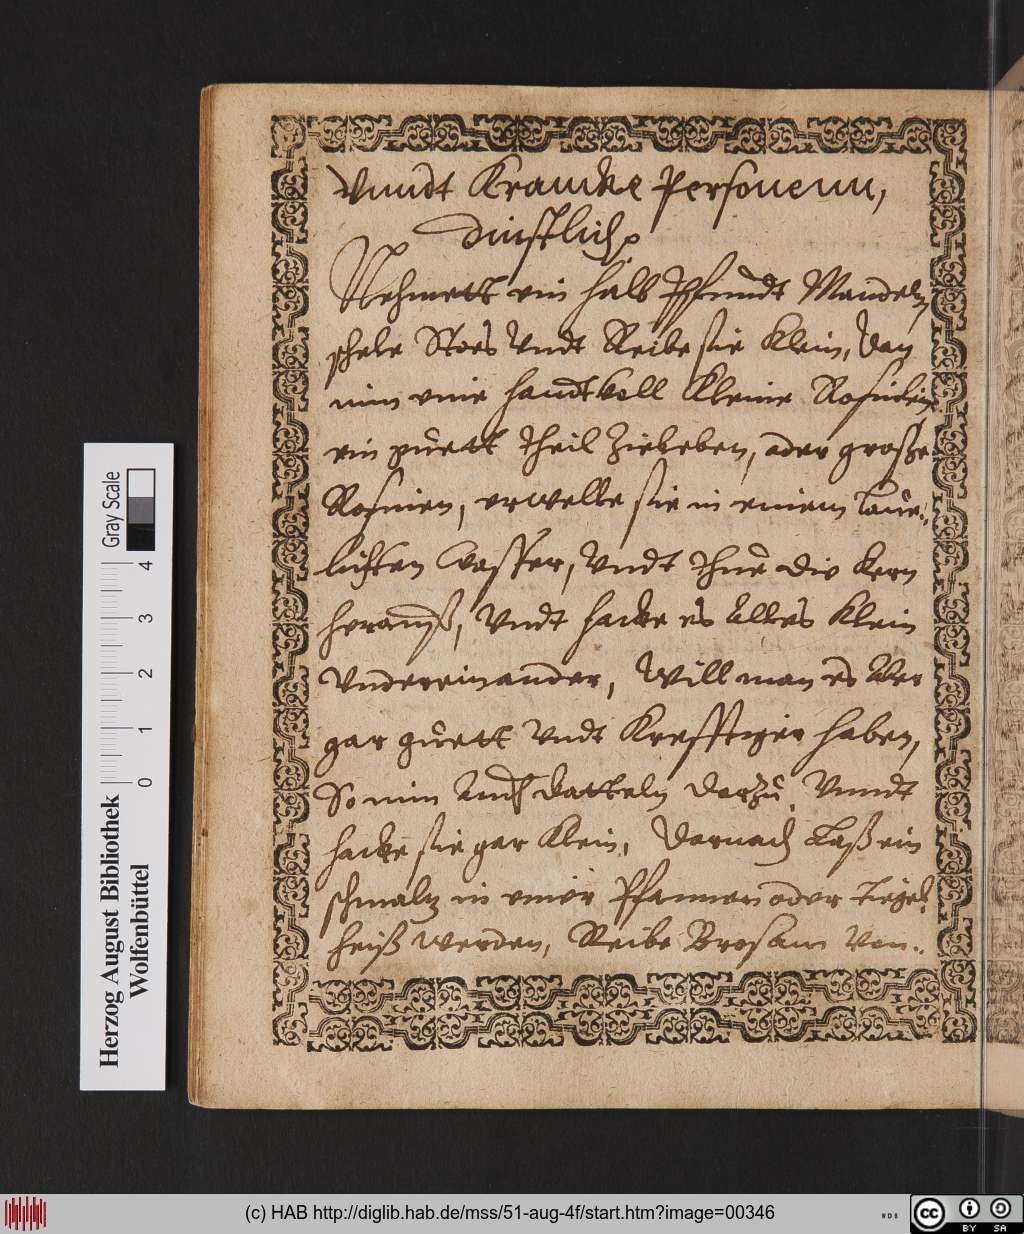 Vnndt Krancke Personenn,
dinstlich.
Nehmett ein halb Pfundt Mandeln,
schele Stoes Vndt Reibe sie Klein, dan
nim eine handt voll Kleine Rosinlein,
ein guett theil Ziebeben, oder große
Rosinen, erwelle sie in einem laue-
lichten Wasser, Vndt thue die Kern
herauß, Vndt hacke es Alles Klein
Vndereinander, Will man es Aber
gar guett Vndt Krefftiger haben,
So nim Auch datteln darzu, Vnndt
hacke sie gar Klein, Darnach Laß ein
schmaltz in einer Pfannen oder Tiegel
heiß werden, Reibe Brosam Von
Gray Scale
0 1 2 3 4
Herzog August Bibliothek
Wolfenbüttel
(c) HAB http://diglib.hab.de/mss/51-aug-4f/start.htm?image=00346
WDB
cc BY SA